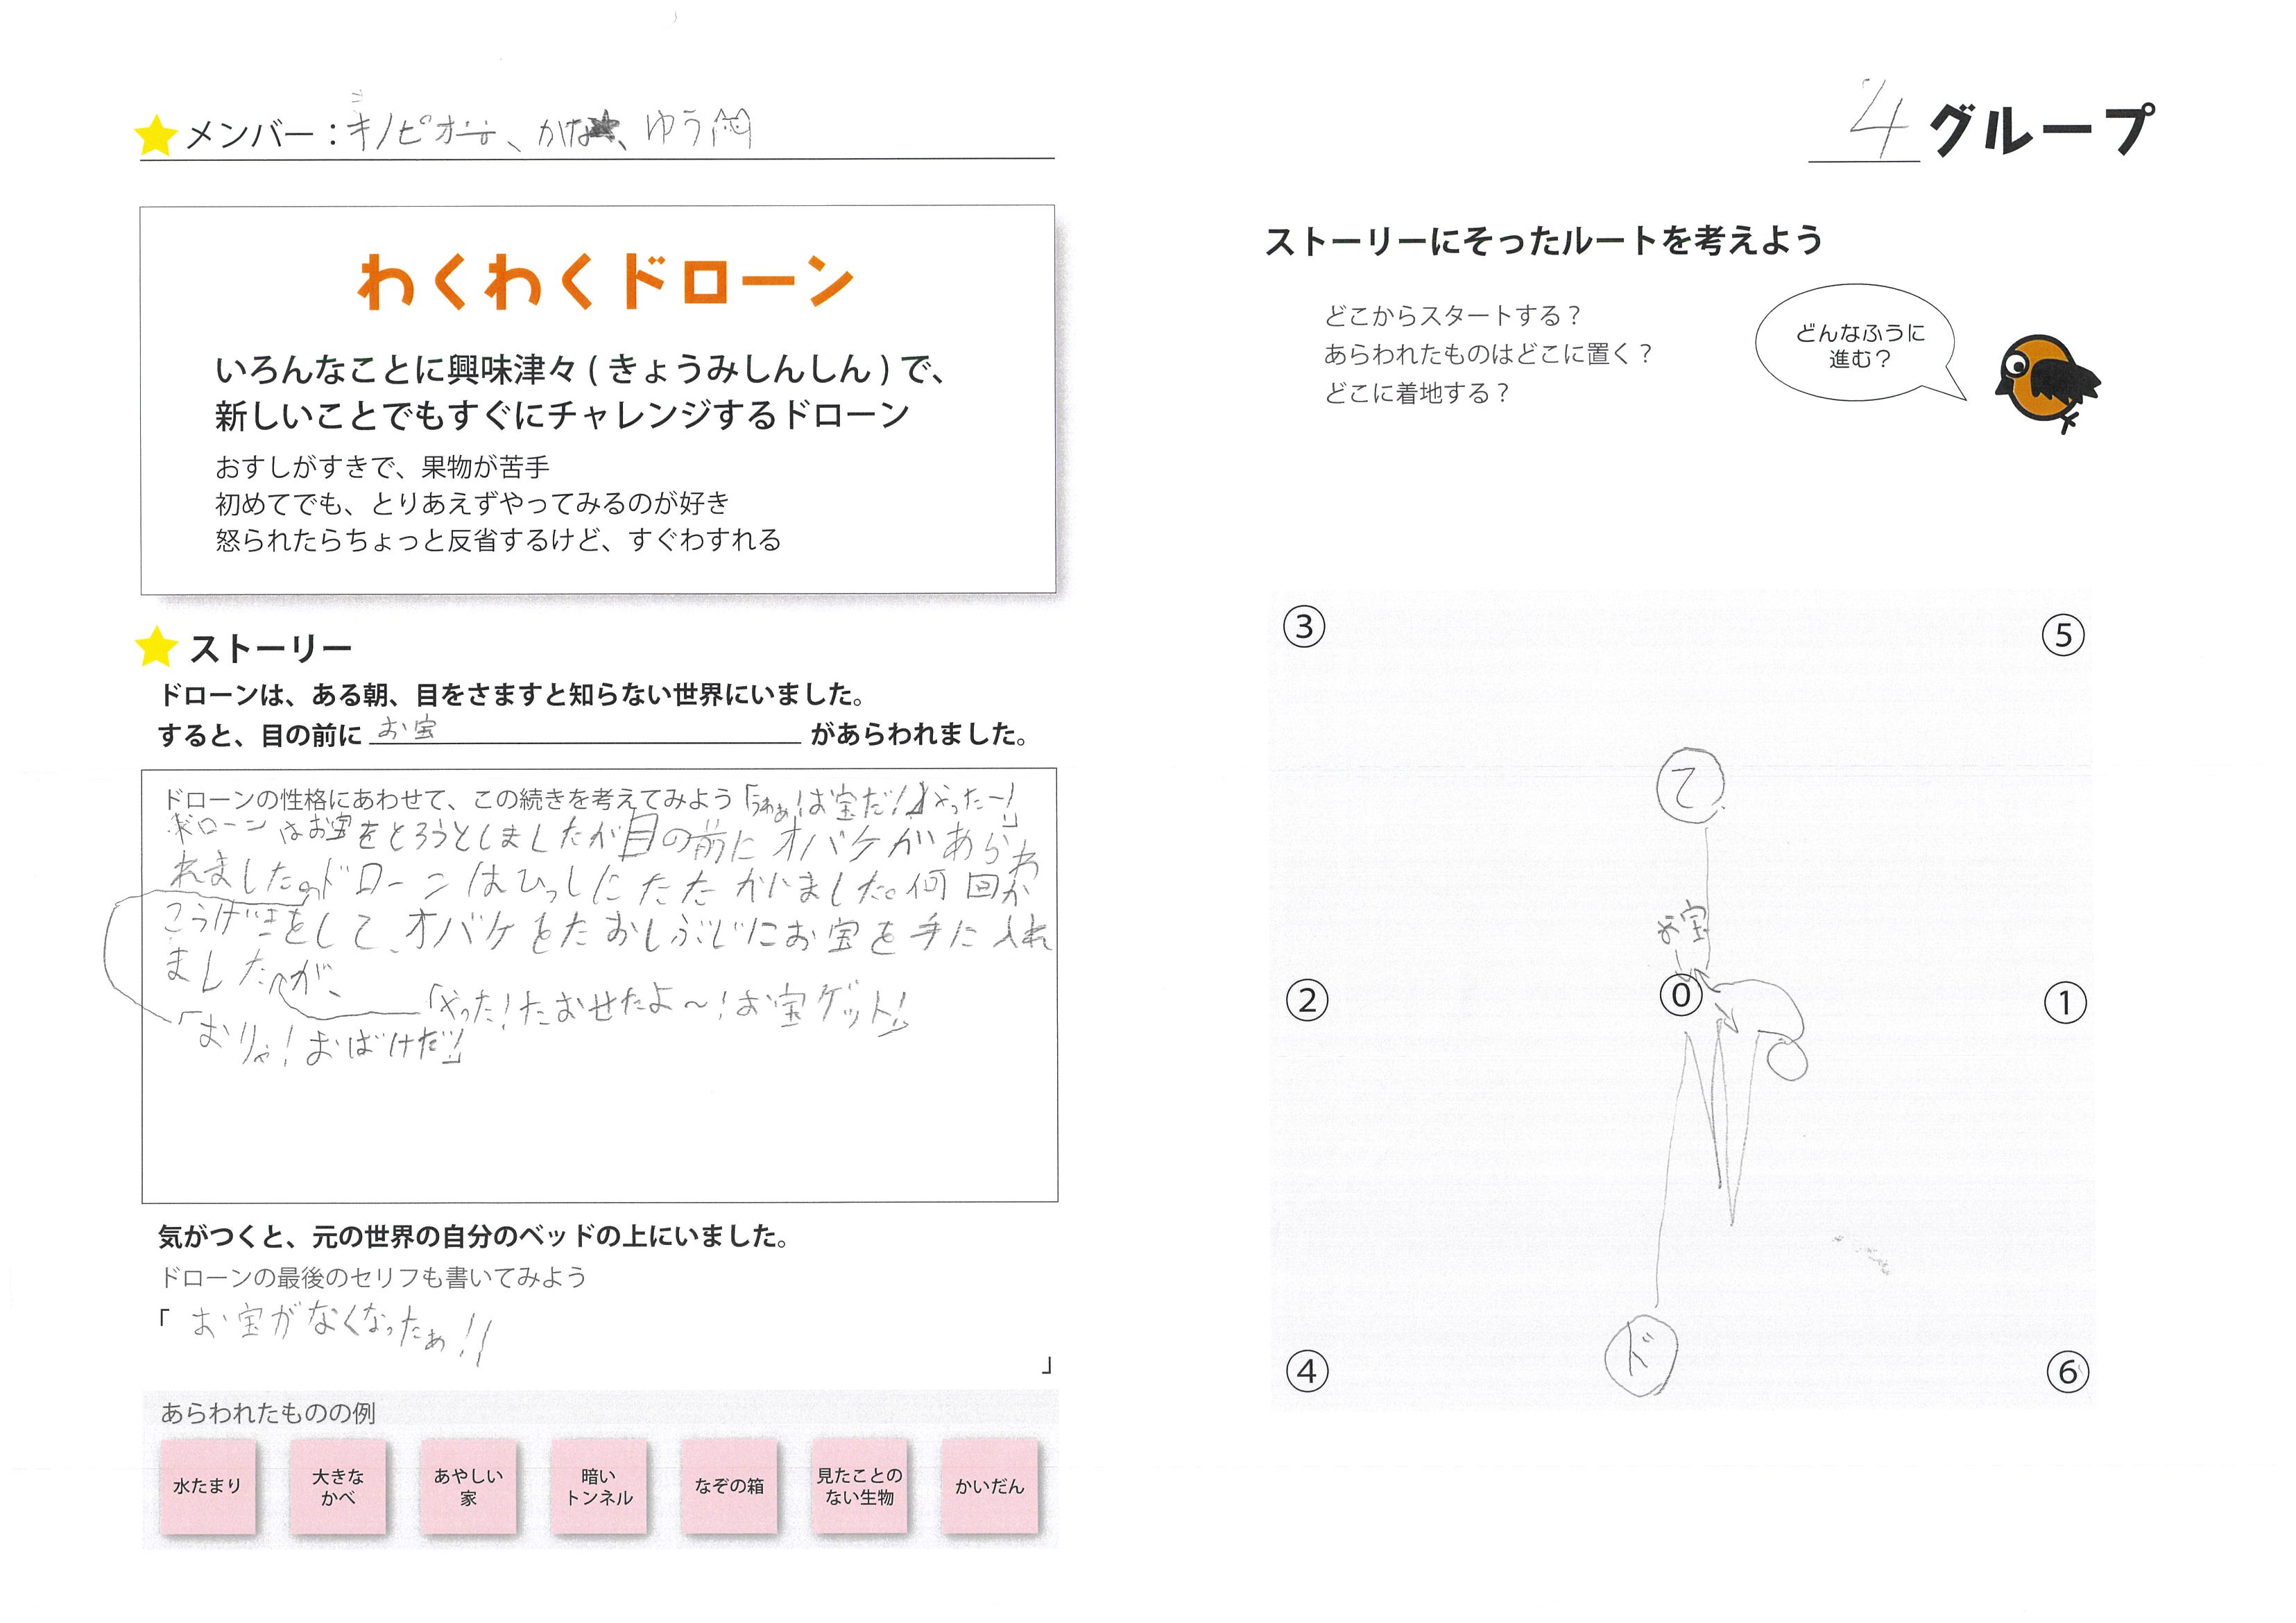 メンバー：キノピオ、かな★、ゆう
4 グループ
わくわくドローン
いろんなことに興味津々 ( きょうみしんしん ) で、
新しいことでもすぐにチャレンジするドローン
おすしがすきで、果物が苦手
初めてでも、とりあえずやってみるのが好き
怒られたらちょっと反省するけど、すぐわすれる
ストーリー
ドローンは、ある朝、目をさますと知らない世界にいました。
すると、目の前に お宝 があらわれました。
ドローンの性格にあわせて、この続きを考えてみよう「うわぁ!お宝だ!やったー!」
ドローンはお宝をとろうとしましたが目の前にオバケがあらわ
れました。ドローンはひっしにたたかいました。何回か
こうげきをして、オバケをたおしぶじにお宝を手に入れ
ましたが、
「やった!たおせたよ〜!お宝ゲット!」
「おりゃ!おばけだ!」
気がつくと、元の世界の自分のベッドの上にいました。
ドローンの最後のセリフも書いてみよう
「お宝がなくなったぁ!!
」
あらわれたものの例
水たまり
大きな
かべ
あやしい
家
暗い
トンネル
なぞの箱
見たことの
ない生物
かいだん
ストーリーにそったルートを考えよう
どこからスタートする？
あらわれたものはどこに置く？
どこに着地する？
どんなふうに
進む？
③
⑤
て
お宝
②
⓪
①
ド
④
⑥